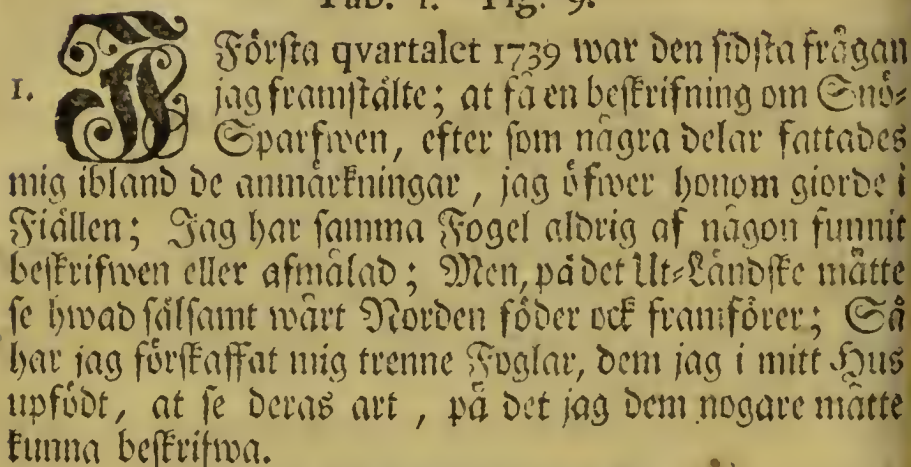 Tab. 1. Fig. 9.
1. I Första qvartalet 1739 war den sidsta frågan
jag framstälte; at få en beskrifning om Snö-
Sparfwen, efter som några delar fattades
mig ibland de anmärkningar, jag öfwer honom giorde i
Fiällen; Jag har samma Fogel aldrig af någon funnit
beskrifwen eller afmålad; Men, på det Ut-Ländske måtte
se hwad sälsamt wårt Norden föder ock framförer; Så
har jag förskaffat mig trenne Foglar, dem jag i mitt Hus
upfödt, at se deras art, på det jag dem nogare måtte
kunna beskrifwa.